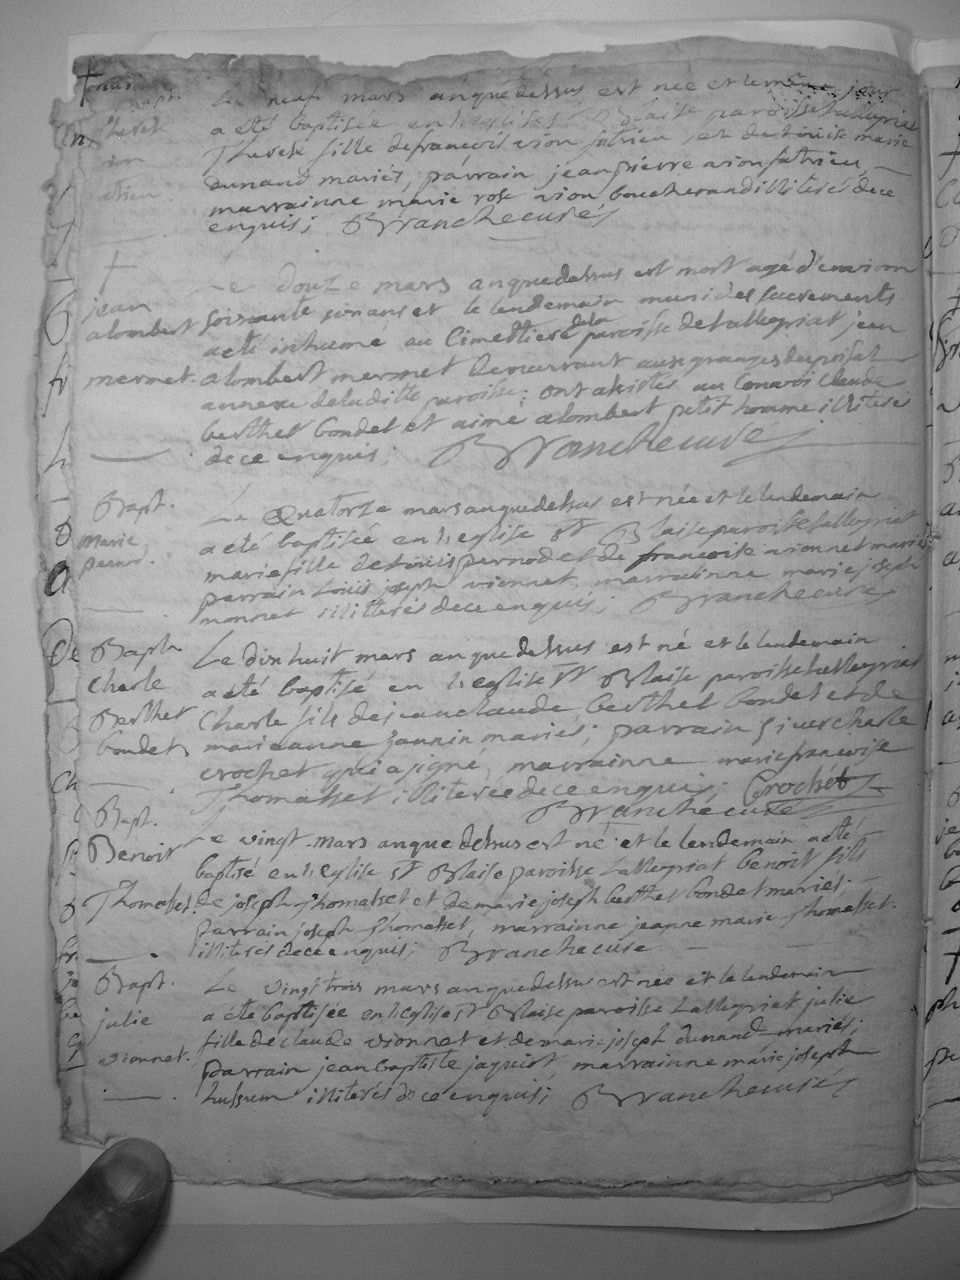 Bapt.
Le neuf mars anquedessus est née et le même jour
a eté baptisée en l'eglise St Blaise paroisse Lalleyriat
Therese fille de françois vion et de Louise marie
dunand mariés, parrain jean pierre vion
marrainne marie rose vion boucherand illiterés de ce
enquis; Branche curé
†
jean
alombert
mermet.
Le douze mars anquedessus est mort agé d'environ
soissante sinc ans et le lendemain muni des sacrements
a eté inhumé au Cimettiere de la paroisse de Lalleyriat jean
alombert mermet demeurant aux granges du poisat
annexe de laditte paroisse; ont assistés au Convoi Claude
berthet bondet et aimé alombert petit homme illiterés
de ce enquis; Branche curé
Bapt.
marie
pernod.
Le Quatorze mars anquedessus est née et le lendemain
a eté baptisée en l'eglise St Blaise paroisse Lalleyriat
marie fille de Louis pernod et de francoise vionnet mariés
parrain Louis joseph vionnet, marrainne marie joseph
monnet illitterés de ce enquis; Branche curé
Bapt.
Charle
Berthet
bondet
Le dixhuit mars anquedessus est né et le lendemain
a eté baptisé en l'eglise St Blaise paroisse Lalleyriat
Charle fils de jean claude berthet bondet et de
marieanne jannin mariés; parrain charle
crochet qui a signé, marrainne marie francoise
Thomasset illiterée de ce enquis; Crochet
Branche curé
Bapt.
Benoit
Thomasset.
Le vingt mars anquedessus est né et le lendemain a eté
baptisé en l'eglise St Blaise paroisse Lalleyriat benoit fils
de joseph Thomasset et de marie joseph berthet bondet mariés;
parrain joseph Thomasset, marrainne jeanne marie Thomasset.
illiterés de ce enquis; Branche curé
Bapt.
julie
vionnet.
Le vingttrois mars anquedessus est née et le lendemain
a eté baptisée en l'eglise St Blaise paroisse Lalleyriat julie
fille de claude vionnet et de marie joseph dunand mariés;
parrain jean baptiste jaquiot, marrainne marie joseph
hussum illiterés de ce enquis; Branche curé